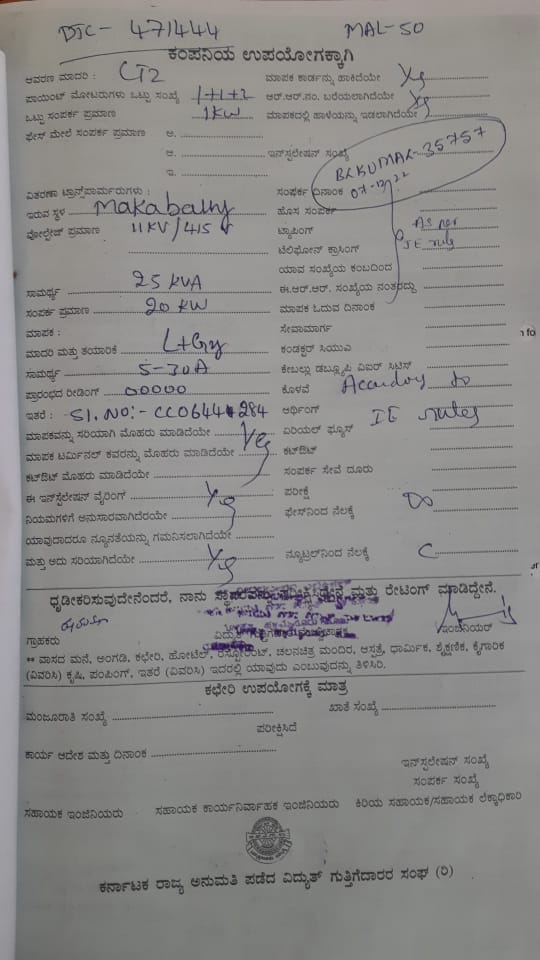 DTC - 47/444 MAL-50
ಕಂಪನಿಯ ಉಪಯೋಗಕ್ಕಾಗಿ
ಆವರಣ ಮಾದರಿ : CT2 ಮಾಪಕ ಕಾರ್ಡನ್ನು ಹಾಕಿದೆಯೇ Yes
ಪಾಯಿಂಟ್ ಮೋಟರುಗಳು ಒಟ್ಟು ಸಂಖ್ಯೆ 1+1+2 ಆರ್.ಆರ್.ನಂ. ಬರೆಯಲಾಗಿದೆಯೇ
ಒಟ್ಟು ಸಂಪರ್ಕ ಪ್ರಮಾಣ 1KW ಮಾಪಕದಲ್ಲಿ ಹಾಳೆಯನ್ನು ಇಡಲಾಗಿದೆಯೇ Yes
ಫೇಸ್ ಮೇಲೆ ಸಂಪರ್ಕ ಪ್ರಮಾಣ ಅ.
ಆ. ಇನ್‌ಸ್ಟಲೇಷನ್ ಸಂಖ್ಯೆ BLKUMAL-35757
ಇ. 07-12/22
ವಿತರಣಾ ಟ್ರಾನ್ಸ್‌ಪಾರ್ಮರುಗಳು : ಸಂಪರ್ಕ ದಿನಾಂಕ
ಇರುವ ಸ್ಥಳ Makabally ಹೊಸ ಸಂಪರ್ಕ
ವೋಲ್ಟೇಜ್ ಪ್ರಮಾಣ 11KV/415 V ಟ್ಯಾಪಿಂಗ್ As per
ಟೆಲಿಫೋನ್ ಕ್ರಾಸಿಂಗ್ IE rule
ಯಾವ ಸಂಖ್ಯೆಯ ಕಂಬದಿಂದ
ಸಾಮರ್ಥ್ಯ 25 KVA ಈ.ಆರ್.ಆರ್. ಸಂಖ್ಯೆಯ ನಂತರದ್ದು
ಸಂಪರ್ಕ ಪ್ರಮಾಣ 20 KW ಮಾಪಕ ಓದುವ ದಿನಾಂಕ
ಮಾಪಕ : ಸೇವಾಮಾರ್ಗ
ಮಾದರಿ ಮತ್ತು ತಯಾರಿಕೆ L+Gy ಕಂಡಕ್ಟರ್ ಸಿಯುಎ
ಸಾಮರ್ಥ್ಯ 5-30A ಕೇಬಲ್ಲು ಡಬ್ಲ್ಯೂಪಿ ವಿಐರ್ ಸಿಟಿಸ್
ಪ್ರಾರಂಭದ ರೀಡಿಂಗ್ 00000 ಕೊಳವೆ According to
ಇತರೆ : Sl. No:- CC0644284 ಅರ್ಥಿಂಗ್ IE rules
ಮಾಪಕವನ್ನು ಸರಿಯಾಗಿ ಮೊಹರು ಮಾಡಿದೆಯೇ Yes ಏರಿಯಲ್ ಫ್ಯೂಸ್
ಮಾಪಕ ಟರ್ಮಿನಲ್ ಕವರನ್ನು ಮೊಹರು ಮಾಡಿದೆಯೇ ಕಟ್‌ಔಟ್
ಕಟ್‌ಔಟ್ ಮೊಹರು ಮಾಡಿದೆಯೇ ಸಂಪರ್ಕ ಸೇವೆ ದೂರು
ಈ ಇನ್‌ಸ್ಟಲೇಷನ್ ವೈರಿಂಗ್ Yes ಪರೀಕ್ಷೆ
ನಿಯಮಗಳಿಗೆ ಅನುಸಾರವಾಗಿದೆರಯೇ ಫೇಸ್‌ನಿಂದ ನೆಲಕ್ಕೆ ∞
ಯಾವುದಾದರೂ ನ್ಯೂನತೆಯನ್ನು ಗಮನಿಸಲಾಗಿದೆಯೇ
ಮತ್ತು ಅದು ಸರಿಯಾಗಿದೆಯೇ Yes ನ್ಯೂಟ್ರಲ್‌ನಿಂದ ನೆಲಕ್ಕೆ C
ಧೃಡೀಕರಿಸುವುದೇನೆಂದರೆ, ನಾನು ಸ್ಥಾವರವನ್ನು ಪರೀಕ್ಷಿಸಿದ್ದೇನೆ ಮತ್ತು ರೇಟಿಂಗ್ ಮಾಡಿದ್ದೇನೆ.
ಗ್ರಾಹಕರು ಇಂಜಿನಿಯರ್
** ವಾಸದ ಮನೆ, ಅಂಗಡಿ, ಕಛೇರಿ, ಹೋಟೆಲ್, ರೆಸ್ಟೋರೆಂಟ್, ಚಲನಚಿತ್ರ ಮಂದಿರ, ಆಸ್ಪತ್ರೆ, ಧಾರ್ಮಿಕ, ಶೈಕ್ಷಣಿಕ, ಕೈಗಾರಿಕ
(ವಿವರಿಸಿ) ಕೃಷಿ, ಪಂಪಿಂಗ್, ಇತರೆ (ವಿವರಿಸಿ) ಇದರಲ್ಲಿ ಯಾವುದು ಎಂಬುವುದನ್ನು ತಿಳಿಸಿರಿ.
ಕಛೇರಿ ಉಪಯೋಗಕ್ಕೆ ಮಾತ್ರ
ಮಂಜೂರಾತಿ ಸಂಖ್ಯೆ ಖಾತೆ ಸಂಖ್ಯೆ
ಪರೀಕ್ಷಿಸಿದೆ
ಕಾರ್ಯ ಆದೇಶ ಮತ್ತು ದಿನಾಂಕ
ಇನ್‌ಸ್ಟಲೇಷನ್ ಸಂಖ್ಯೆ
ಸಂಪರ್ಕ ಸಂಖ್ಯೆ
ಸಹಾಯಕ ಇಂಜಿನಿಯರು ಸಹಾಯಕ ಕಾರ್ಯನಿರ್ವಾಹಕ ಇಂಜಿನಿಯರು ಕಿರಿಯ ಸಹಾಯಕ/ಸಹಾಯಕ ಲೆಕ್ಕಾಧಿಕಾರಿ
ಕರ್ನಾಟಕ ರಾಜ್ಯ ಅನುಮತಿ ಪಡೆದ ವಿದ್ಯುತ್ ಗುತ್ತಿಗೆದಾರರ ಸಂಘ (ರಿ)